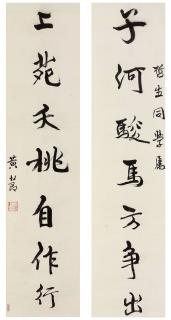 哲生同學属
子河駿馬方争出
上苑夭桃自作行
黄